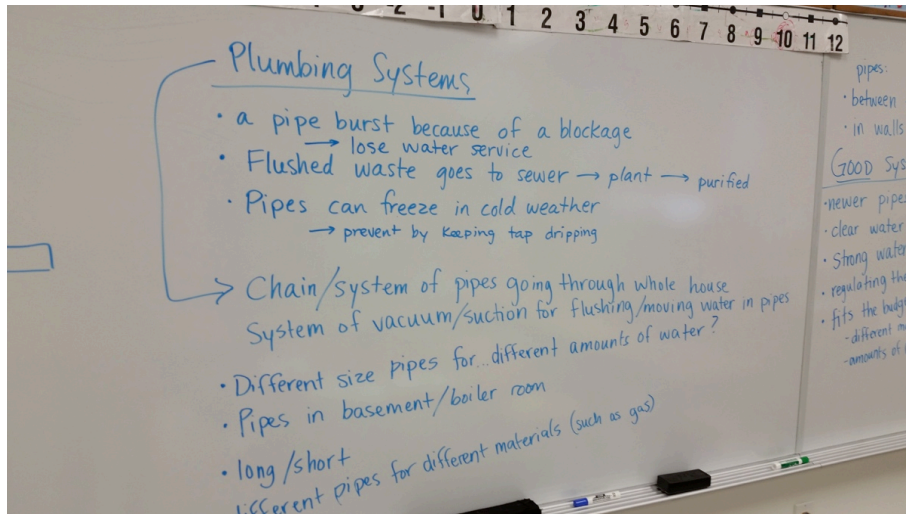 -2 -1 0 1 2 3 4 5 6 7 8 9 10 11 12
Plumbing Systems
• a pipe burst because of a blockage
→ lose water service
• Flushed waste goes to sewer → plant → purified
• Pipes can freeze in cold weather
→ prevent by keeping tap dripping
→ Chain/system of pipes going through whole house
System of vacuum/suction for flushing/moving water in pipes
• Different size pipes for...different amounts of water?
• Pipes in basement/boiler room
• long/short
different pipes for different materials (such as gas)
pipes:
• between
• in walls
GOOD Sys
• newer pipes
• clear water
• Strong water
• regulating the
• fits the budg
- different m
- amounts of